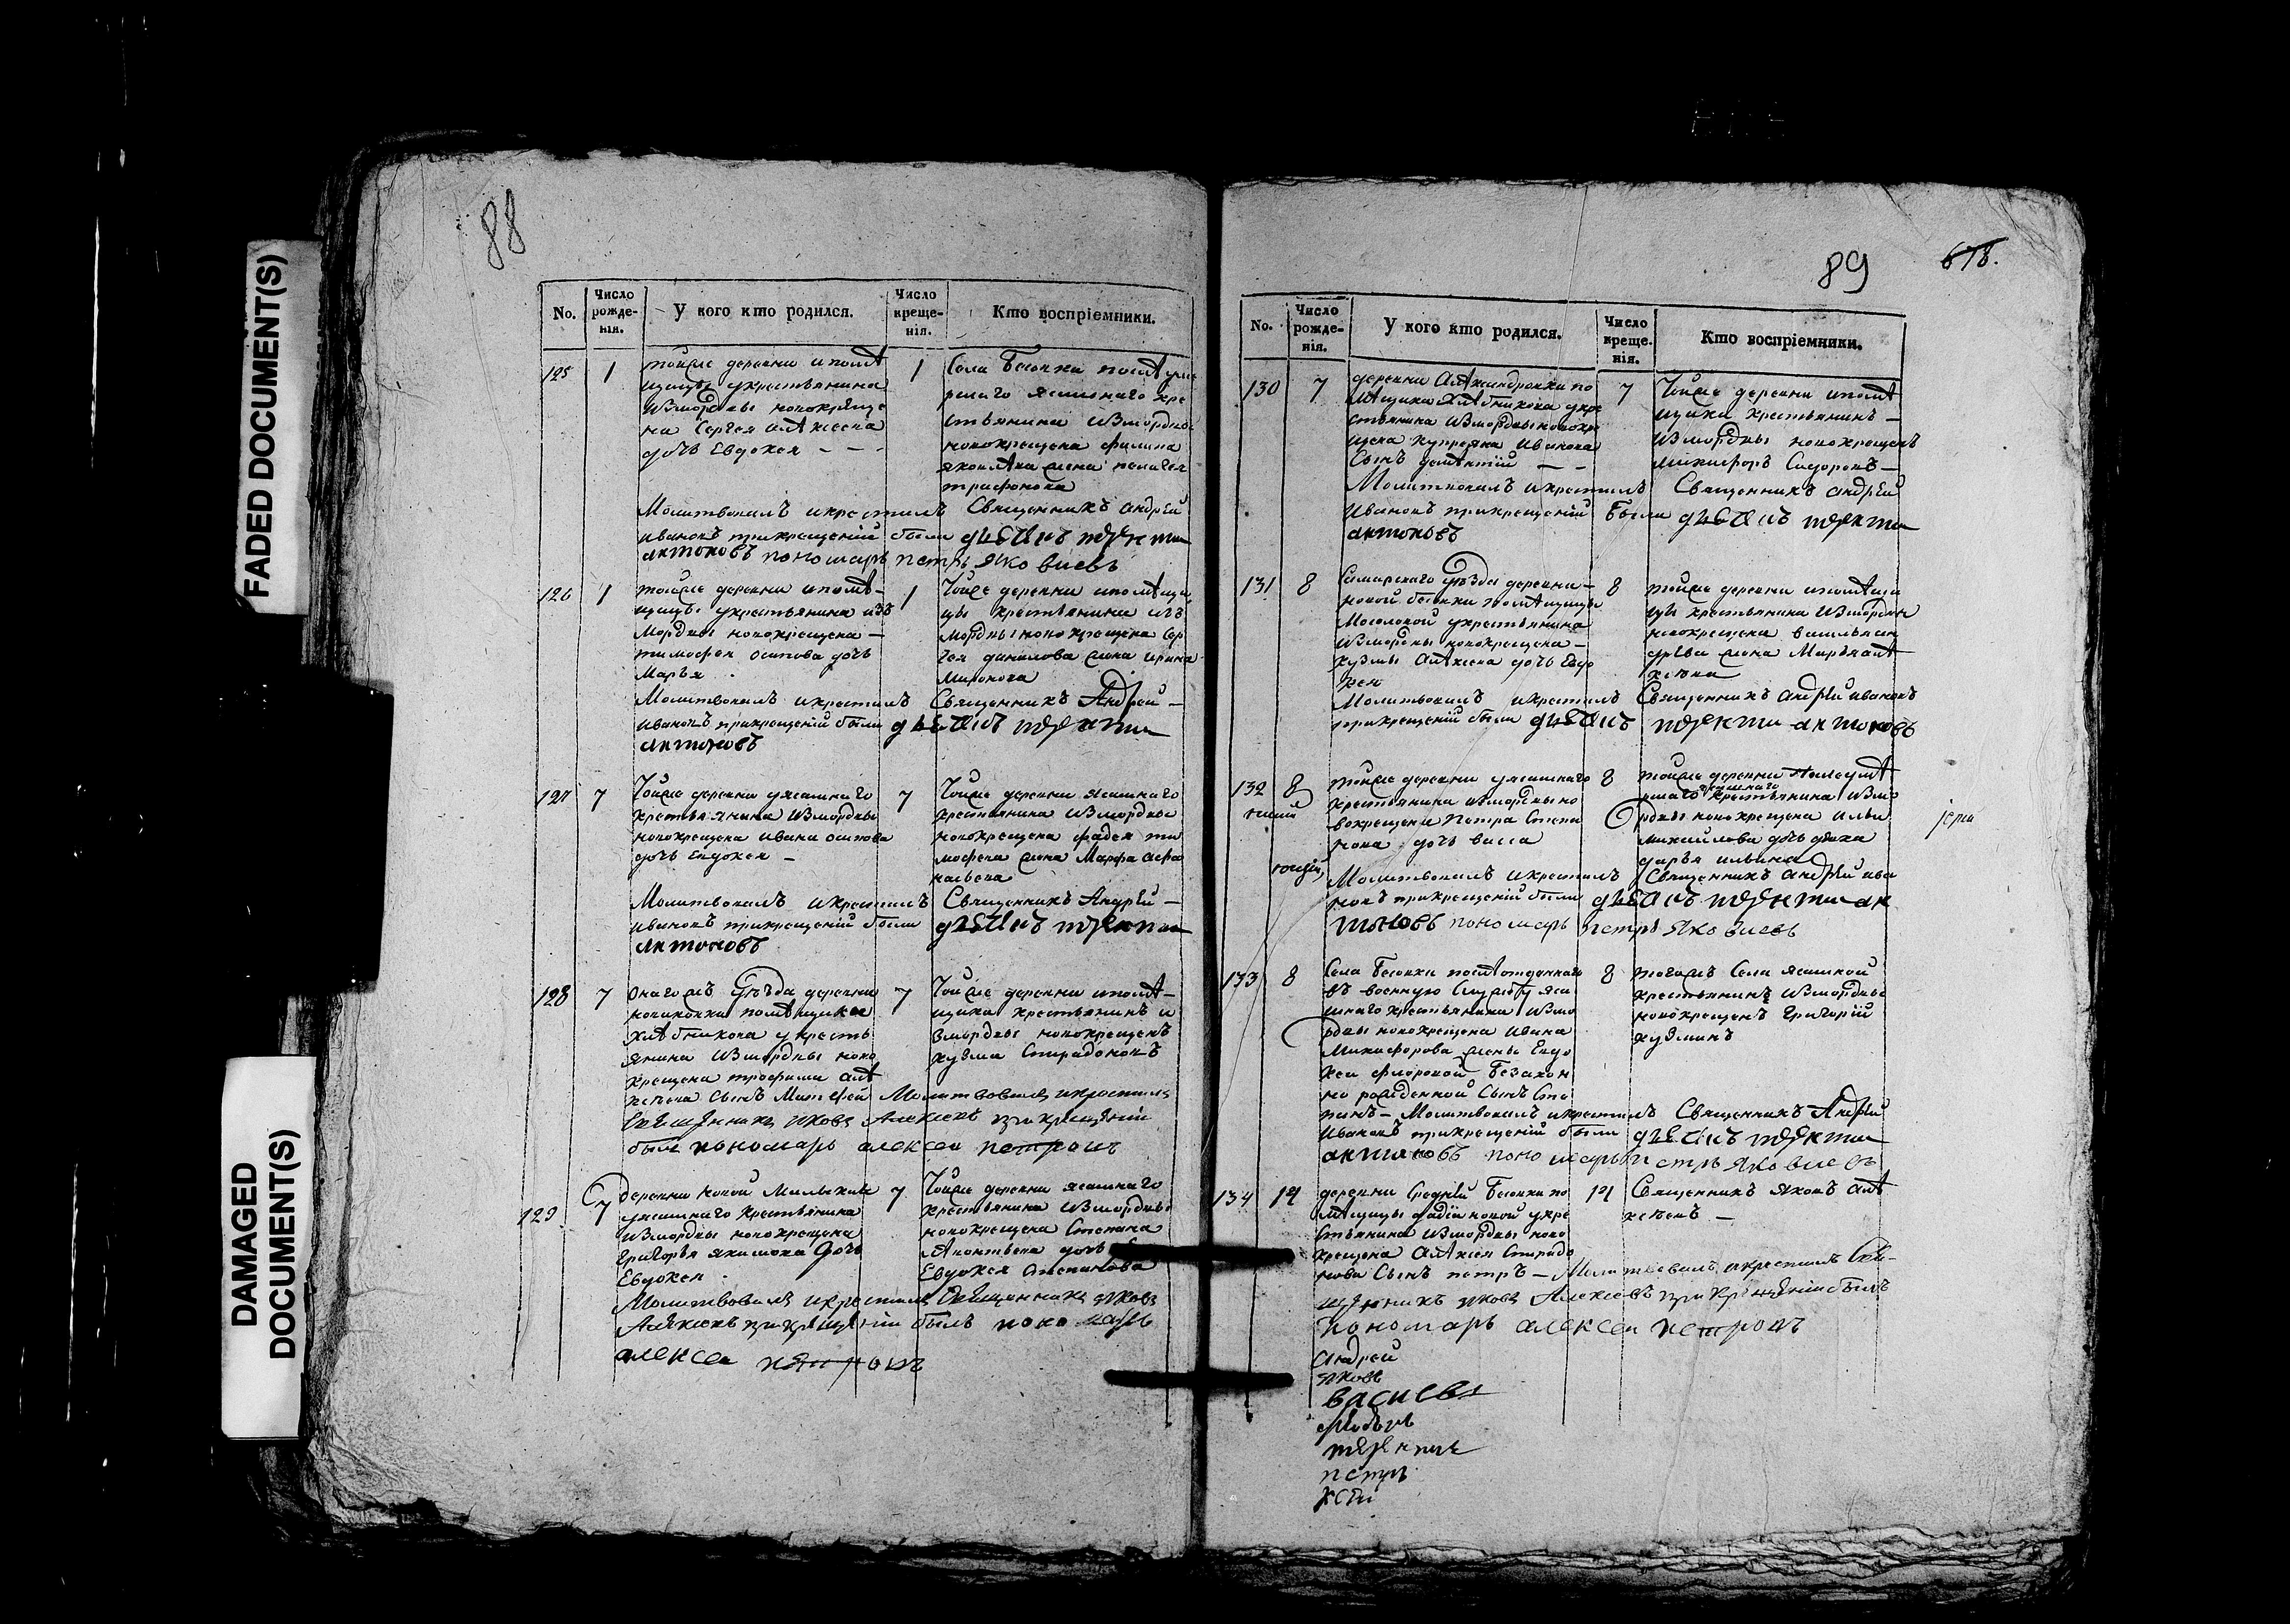 FADED DOCUMENT(S)
DAMAGED DOCUMENT(S)
88
No.
Число рожде- нія.
У кого кто родился.
Число креще- нія.
Кто воспріемники.
125
1
тойже деревни и помѣ
щицы укрестьянина
измордвы новокреще
на Сергея алѣксеева
дочь Евдокея
1
Села Бесовки послѣ уме
ршаго ясашнаго кре
стьянина измордвы
новокрещена филипа
яковлѣва жена пелагея
трифонова
Молитвовалъ икрестилъ Священникъ андрѣй
ивановъ прикрещеніи были дьячекъ терентии
антоновъ пономарь петръ яковлевъ
126
1
тойже деревни и помѣ-
щицы укрестьянина изъ
Мордвы новокрещена
тимофея осипова дочь
Марья
1
Тойже деревни ипомѣщи
цы крестьянина изъ
мордвы новокрещена Сер
гея данилова жена ирина
Миронова
Молитвовалъ икрестилъ Священникъ Андрей
ивановъ прикрещеніи были дьячекъ терентии
антоновъ
127
7
Тойже деревни уясашнаго
крестьянина Измордвы
новокрещена ивана осипова
дочь Евдокея
7
Тойже деревни ясашнаго
крестьянина Измордвы
новокрещена фадея ти
мофеева жена Марфа афа
насьева
Молитвовалъ икрестилъ Священникъ Андрѣй
ивановъ прикрещеніи были дьячекъ терентии
антоновъ
128
7
Онагожъ Уѣзда деревни
новиковки помѣщика
Хлѣбникова укресть
янина Измордвы ново
крещена трофима алѣ
ксеева сынъ Матѳей
7
Тойже деревни ипомѣ-
щика крестьянинъ и
змордвы новокрещенъ
кузма Спиридоновъ
Молитвовалъ икрестилъ
Священникъ иковъ Алексѣевъ прикрещеніи
былъ пономарь алексеи петровъ
129
7
деревни новой Малыклы
уясашнаго крестьянина
Измордвы новокрещена
Григорья якимова дочь
Евдокея
7
Тойже деревни ясашнаго
крестьянина Измордвы
новокрещена Степана
лѣонтьева дочь
Евдокея степанова
Молитвовалъ икрестилъ Священникъ иковъ
Алѣксеевъ прикрещеніи былъ пономарь
алексеи петровъ
89
678.
No.
Число рожде- нія.
У кого кто родился.
Число креще- нія.
Кто воспріемники.
130
7
деревни Алѣксандровки по
мѣщика Хлѣбникова укре
стьянина Измордвы новокре
щена купреяна Иванова
Сынъ дементій
7
Тойже деревни ипомѣ
щика крестьянинъ
измордвы новокрещенъ
никифоръ Сидоровъ
Молитвовалъ икрестилъ Священникъ андрѣй
Ивановъ прикрещеніи были дьячекъ терентии
антоновъ
131
8
Самарскаго Уѣзда деревни
новой бесовки помѣщицы
Мосоловой укрестьянина
Измордвы новокрещена
кузмы Алѣксеева дочь Евдо
кея
8
тойже деревни ипомѣщи
цы крестьянина Измордвы
новокрещена василья ан
дреева жена Марья алѣ
ксеева
Молитвовалъ икрестилъ Священникъ андрѣй ивановъ
прикрещеніи были дьячекъ терентии антоновъ
132
8
тойже деревни уясашнаго
крестьянина измордвы но
вокрещена Петра Степа
нова дочь васса
8
тойже деревни послѣумѣ
ршаго ясашнаго крестьянина Измо
рдвы новокрещена ильи
михайлова дочь девка
дарья ильина
Молитвовалъ икрестилъ Священникъ андрѣй ива
новъ прикрещеніи были дьячекъ терентии ан
тоновъ пономарь петръ яковлевъ
133
8
Села Бесовки послѣотданнаго
въ военную Службу яса
шнаго крестьянина Измо
рдвы новокрещена Ивана
Микифорова жены Евдо
кеи флоровой Безакон
но рожденной Сынъ Сте
панъ
8
тогожъ Села ясашной
крестьянинъ Измордвы
новокрещенъ Григорій
кузминъ
Молитвовалъ икрестилъ Священникъ Андрѣй
Ивановъ прикрещеніи были дьячекъ терентии
антоновъ пономарь петръ яковлевъ
134
14
деревни Средней Бесовки по
мѣщицы фадѣиновой укре
стьянина Измордвы ново
крещена Алѣксея Спиридо
нова Сынъ петръ
14
Священникъ яковъ алѣ
ксеевъ
Молитвовалъ икрестилъ Свя-
щенникъ иковъ Алексеевъ прикрещеніи былъ
пономарь алексеи петровъ
Андреи
яковъ
василеи
терентие
петръ